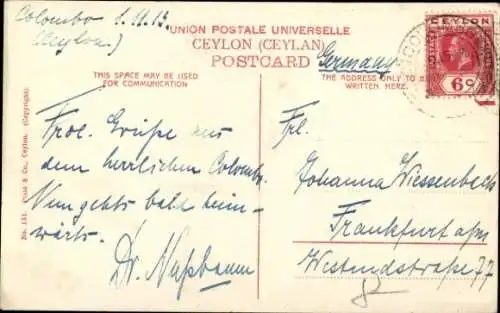 Colombo 1.11.13.
(Ceylon.)
UNION POSTALE UNIVERSELLE
CEYLON (CEYLAN)
POSTCARD
Germany
THIS SPACE MAY BE USED
FOR COMMUNICATION
THE ADDRESS ONLY TO B
WRITTEN HERE.
CEYLON
POSTAGE
6c
Froe. Grüße aus
dem herrlichen Colombo.
Nun gehts bald heim-
wärts.
Dr. Nußbaum
Frl.
Johanna Wiessenbach
Frankfurt a/m
Westendstraße 77
No. 151. Plâté & Co., Ceylon. (Copyright)